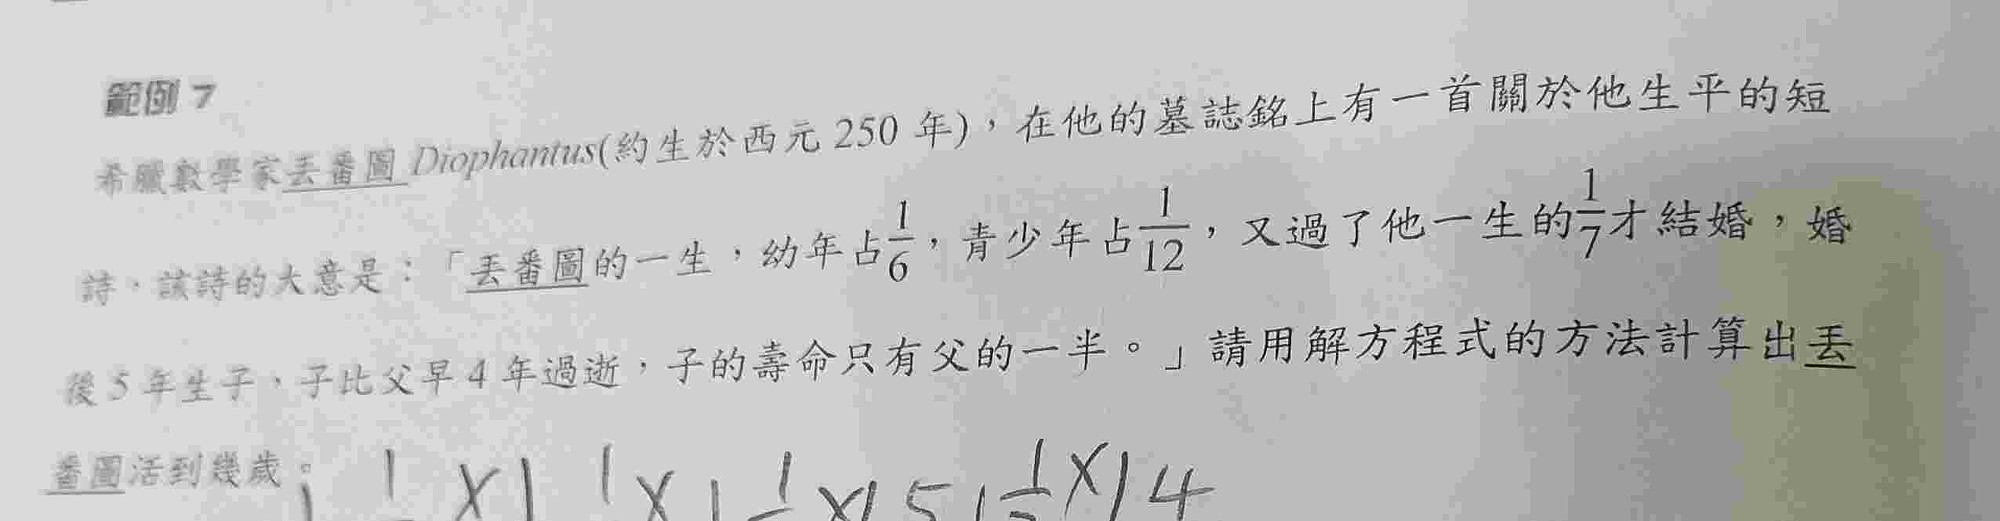 範例 7
希臘數學家丟番圖 Diophantus(約生於西元 250 年),在他的墓誌銘上有一首關於他生平的短
詩,該詩的大意是:「丟番圖的一生,幼年占1/6,青少年占1/12,又過了他一生的1/7才結婚,婚
後 5 年生子,子比父早 4 年過逝,子的壽命只有父的一半。」請用解方程式的方法計算出丟
番圖活到幾歲。